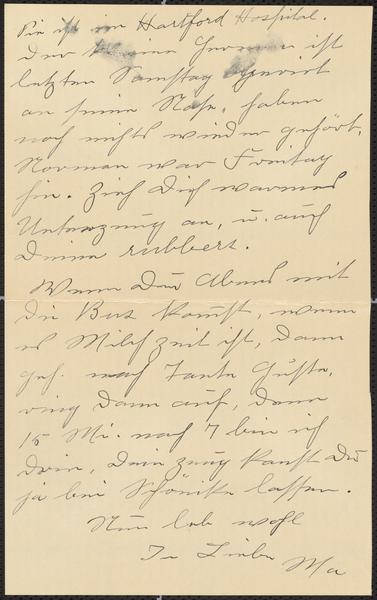 Sie ist im Hartford Hospital.
Der kleine Herman ist
letzten Samstag operiert
an seine Nase, haben
noch nichts wieder gehört,
Norman war Freitag
hin. Zieh Dich warmes
Unterzeug an, u. auch
Deine rubbers.
Wenn Du Abens mit
die Bus kommst, wenn
es Milchzeit ist, dann
geh. nach Tante Guste,
ring dann auf, denn
15 Mi. nach 7 bin ich
drin, Dein zeug kanst Du
ja bei Schönike lassen.
Nun leb wohl
In Liebe Ma